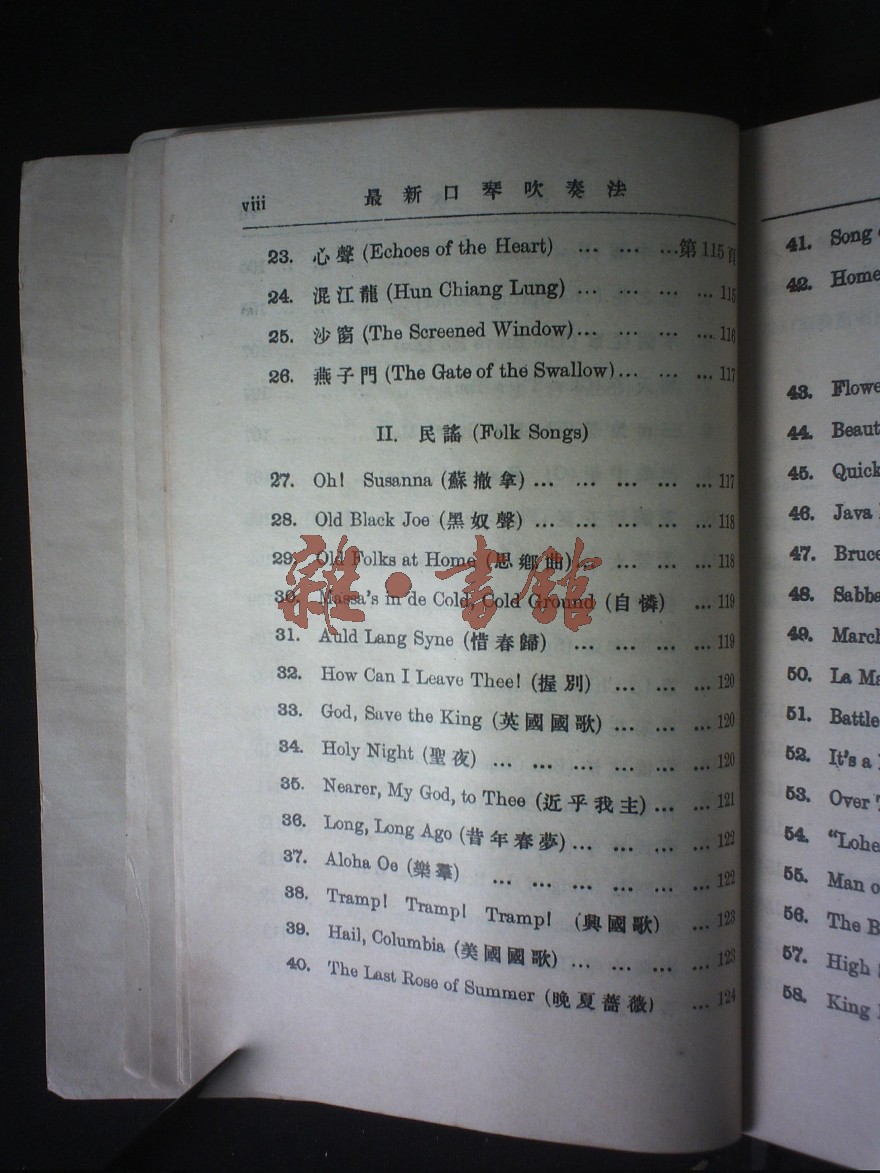 viii 最新口琴吹奏法
23. 心聲 (Echoes of the Heart) ... ... ...第115頁
24. 混江龍 (Hun Chiang Lung) ... ... ... ... 115
25. 沙窗 (The Screened Window)... ... ... ... 116
26. 燕子門 (The Gate of the Swallow)... ... ... 117
II. 民謠 (Folk Songs)
27. Oh! Susanna (蘇撤拿) ... ... ... ... ... 117
28. Old Black Joe (黑奴聲) ... ... ... ... ... 118
29. Old Folks at Home (思鄉曲)... ... ... ... 118
30. Massa's in de Cold, Cold Ground (自憐) ... 119
31. Auld Lang Syne (惜春歸) ... ... ... ... 119
32. How Can I Leave Thee! (握別) ... ... ... 120
33. God, Save the King (英國國歌) ... ... ... 120
34. Holy Night (聖夜) ... ... ... ... ... ... 120
35. Nearer, My God, to Thee (近乎我主) ... ... 121
36. Long, Long Ago (昔年春夢)... ... ... ... 122
37. Aloha Oe (樂羣) ... ... ... ... ... ... 122
38. Tramp! Tramp! Tramp! (興國歌) ... 123
39. Hail, Columbia (美國國歌) ... ... ... ... 123
40. The Last Rose of Summer (晚夏薔薇) ... 124
雜·書館
41. Song
42. Home
43. Flowe
44. Beaut
45. Quick
46. Java
47. Bruce
48. Sabba
49. March
50. La Ma
51. Battle
52. It's a
53. Over
54. "Lohe
55. Man o
56. The B
57. High
58. King